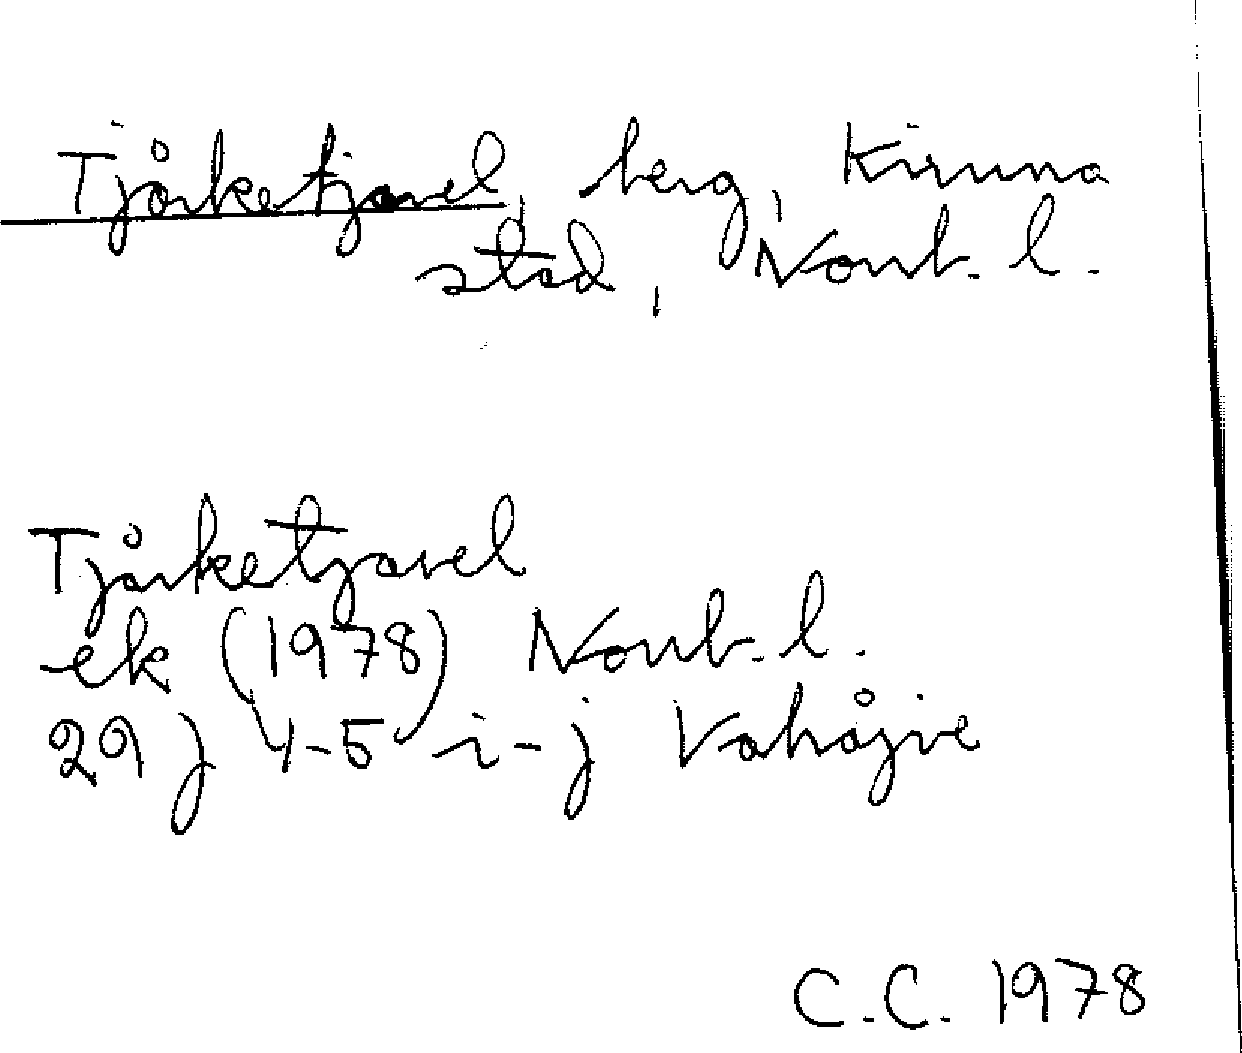 Tjårketjavel, berg, Kiruna
stad, Norrb. l.
Tjårketjavel
ek (1978) Norrb. l.
29 J 4-5 i-j Vahåjve
C.C. 1978